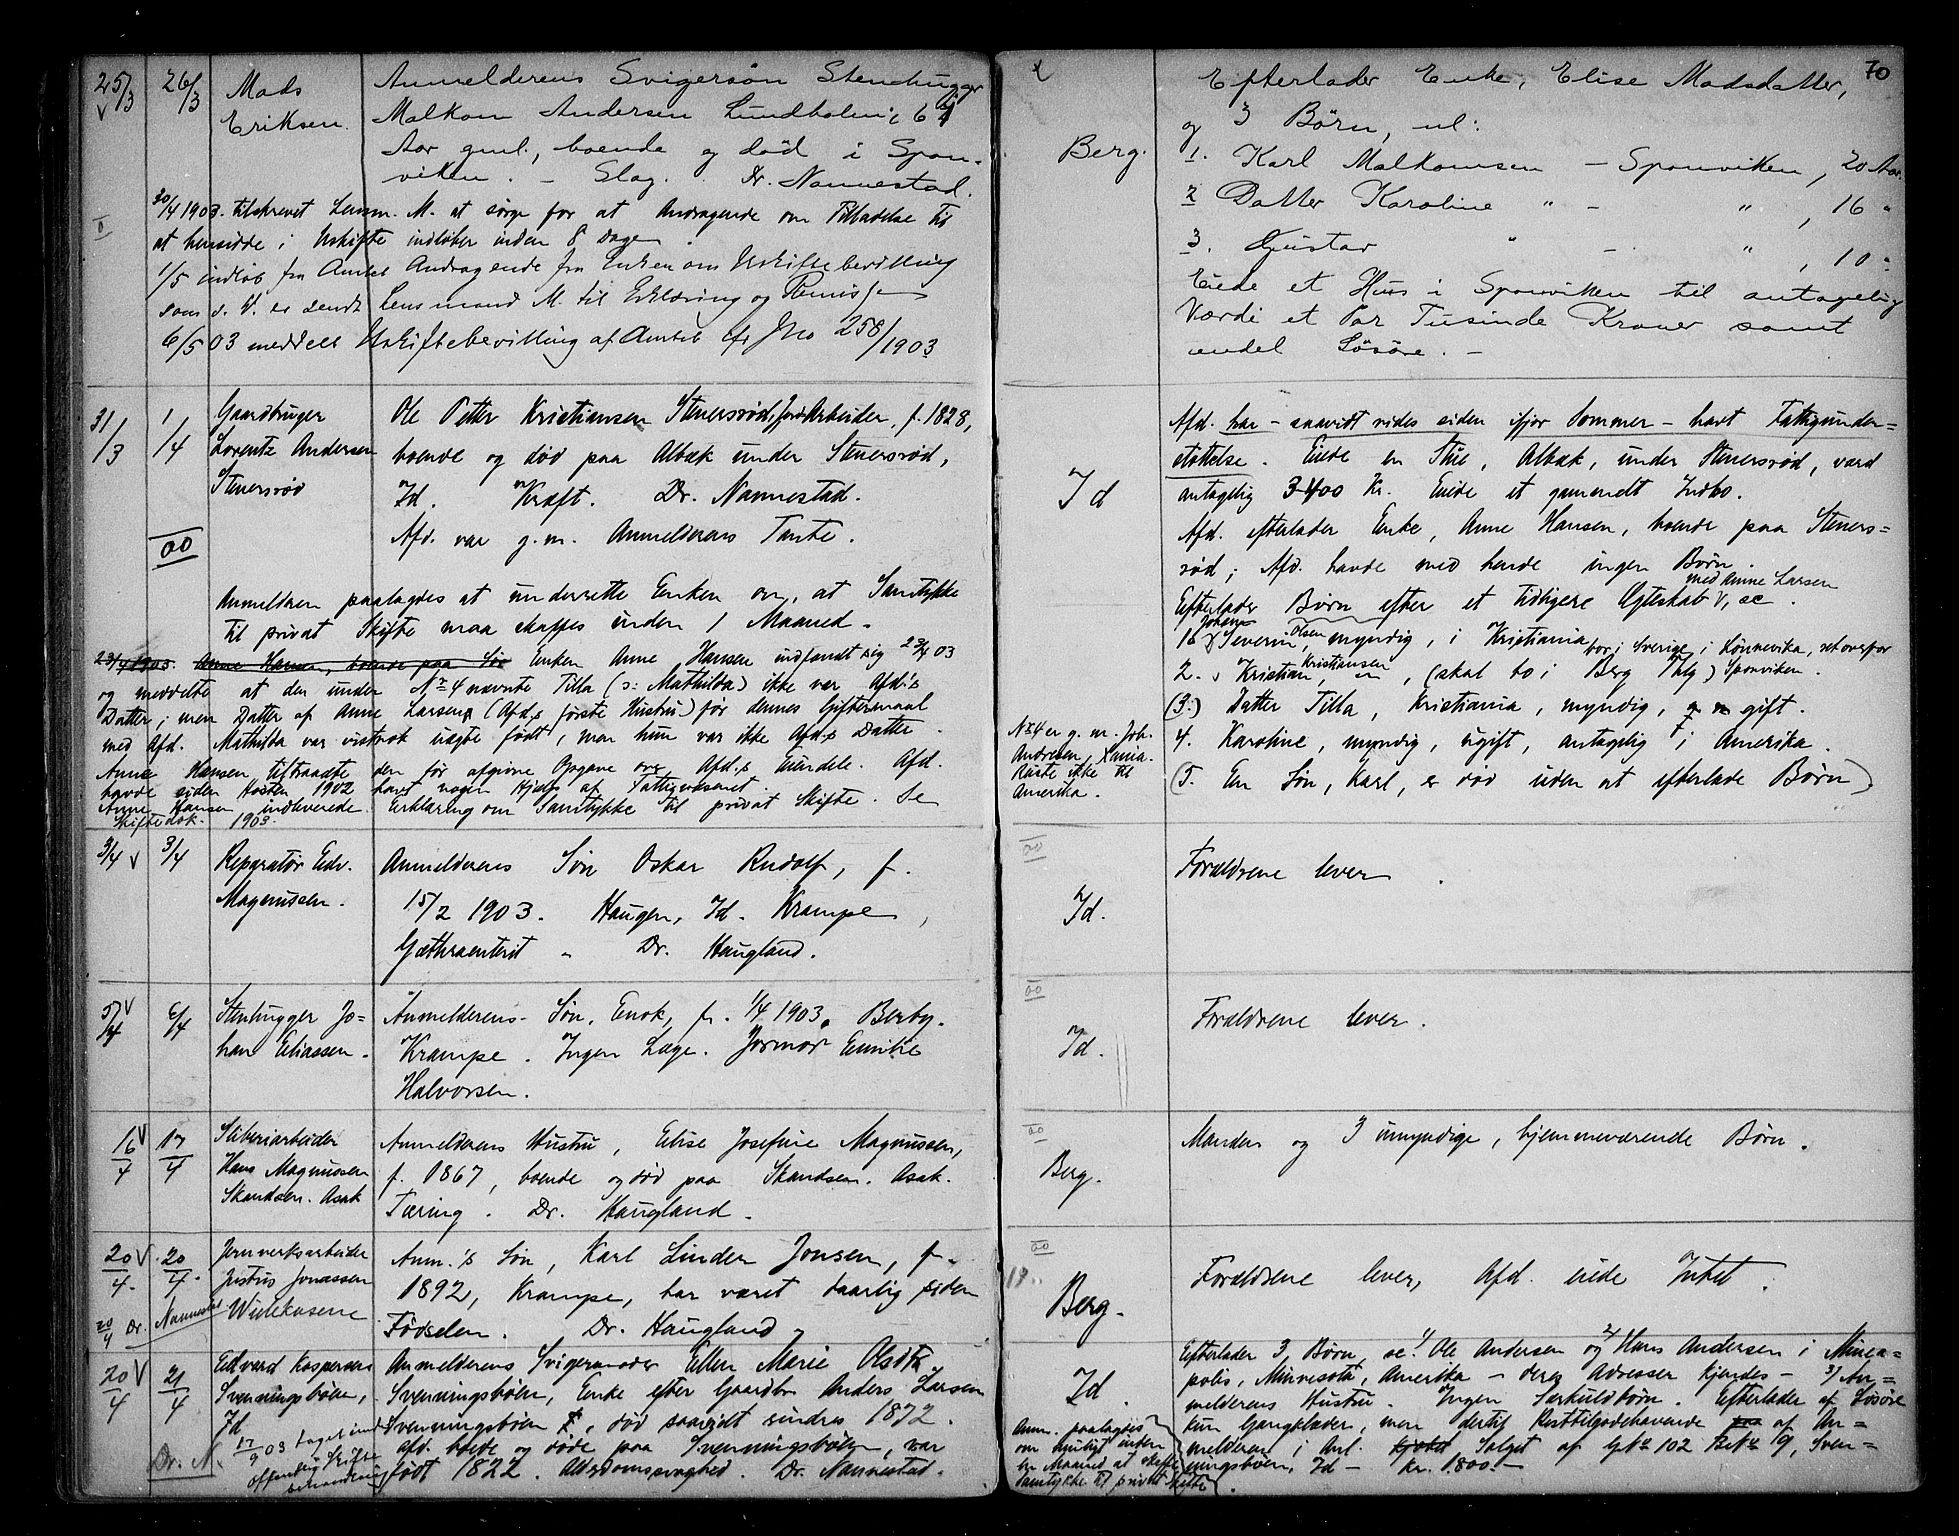 25/3
26/3
Mads
Eriksen.
Anmelderens Svigersøn Stenhugger
Malkom Andersen Lundholm, 61
Aar gml., boende og død i Spon-
viken. – Slag. Dr. Nannestad.
30/4 1903. tilskrevet Lensm. M. at sørge for at Andragende om Tilladelse til
at hensidde i Uskifte indløber inden 8 Dage.
1/5 indløb fra Amtet Andragende fra Enken om Uskiftebevilling
som s. D. er sendt Lensmand M. til Erklæring og Remisse
6/5 03 meddelt Uskiftebevilling af Amtet cfr Jno 258/1903
31/3
1/4
Gaardbruger
Lorentz Andersen
Stenersrød
00
Ole Petter Kristiansen Stenersrød, Jordarbeider, f. 1828,
boende og død paa Albæk under Stenersrød,
Id. Kræft. Dr. Nannestad.
Afd. var g.m. Anmelderens Tante.
Anmelderen paalagdes at underrette Enken om, at Samtykke
til privat Skifte maa skaffes inden 1 Maaned.
23/4 1903. Anne Hansen, boende paa Sti Enken Anne Hansen indfandt sig 23/4 03
og meddelte at den under No 4 nævnte Tilla (ɔ: Mathilda) ikke var Afd.'s
Datter, men Datter af Anne Larsen (Afd.s første Hustru) før dennes Giftermaal
med Afd. Mathilda var vistnok uægte født, men hun var ikke Afd.s Datter.
Anne Hansen tiltraadte den før afgivne Opgave over Afd.s Eiendele. Afd.
havde siden Høsten 1902 havt nogen Hjælp af Fattigvæsenet.
Anne Hansen indleverede Erklæring om Samtykke til privat Skifte. Se
Skiftedok. 1903.
3/4 V
3/4
Reparatør Edv.
Magnussen.
Anmelderens Søn Oskar Rudolf, f.
15/2 1903. Haugen, Id. Krampe,
Dr. Haugland.
5/4 V
6/4
Stenhugger Jo=
han Eliassen.
Anmelderens Søn, Enok, f. 1/4 1903, Berby.
Krampe. Ingen Læge. Jormor Emilie
Halvorsen.
16/4 V
17/4
Sliberiarbeider
Hans Magnussen
Skandsen. Asak
Anmelderens Hustru, Elise Josefine Magnussen,
f. 1867, boende og død paa Skandsen. Asak.
Tæring. Dr. Haugland.
20/4 V
20/4.
20/4 Dr. Nannestad
Jernverksarbeider
Justus Jonassen
Anm.'s Søn, Karl Linder Jonsen, f.
1892, Krampe, har været daarlig siden
Fødselen. Dr. Haugland
20/4 V
21/4
Edvard Kaspersen
Svenningsbøen,
Id
Dr. N.
17/9 03 taget under
offentlig Skifte
behandling
Anmelderens Svigermoder Ellen Marie Olsdtr
Svenningsbøen, Enke efter Gaardbr. Anders Larsen
Svenningsbøen, død saavidt vindes 1872.
Afd. boede og døde paa Svenningsbøen, var
født 1822. Alderdomssvaghed. Dr. Nannestad.
70
Berg.
Efterlader Enke, Elise Madsdatter,
og 3 Børn, nl:
1. Karl Malkomsen – Sponviken, 20 Aar.
2 Datter Karoline " – " , 16 "
3. Gustav " – " , 10 "
Eiede et Hus i Sponviken til antagelig
Værdi et Par Tusinde Kroner samt
endel Løsøre. –
Id
Afd. har – saavidt vides siden ifjor Sommer – havt Fattigunder=
støttelse. Eiede en Stue, Albæk, under Stenersrød, værd
antagelig 3-400 Kr. Eiede et gammelt Indbo.
Afd. efterlader Enke, Anne Hansen, boende paa Steners=
rød; Afd. havde med hende ingen Børn.
Efterlader Børn efter et tidligere Ægteskab V, se. med Anne Larsen
1. Johan Severin Olsen, myndig, i Kristiania bor i Sverige, i Lønnevika, ret overfor
2. Kristian Kristiansen, (skal bo i Berg Thlg) Sponviken.
(3.) Datter Tilla, Kristiania, myndig, gift.
4. Karoline, myndig, ugift, antagelig i Amerika.
(5. En Søn, Karl, er død uden at efterlade Børn).
No 4 er g. m. Joh.
Andresen, Xania.
Reiste ikke til
Amerika.
00
Id.
Forældrene lever.
00
Id.
Forældrene lever.
00
Berg.
Manden og 3 umyndige, hjemmeværende Børn.
00
Berg.
Forældrene lever, Afd. eiede Intet.
Id.
Efterlader 3 Børn, se: 1/ Ole Andersen og 2/ Hans Andersen i Minea=
polis, Minnesota, Amerika – deres Adresser kjendes – 3/ An=
melderens Hustru. Ingen Særkuldbørn. Efterlader af Løsøre
kun Gangklæder, men dertil Resttilgodehavende paa af An=
melderen i Anl. Kjøbet Salget af GNo 102 BNo 9, Sven=
ningsbøen, Id – Kr. 1800. –
Anm. paalagdes
om muligt inden
en Maaned at skaffe
Samtykke til privat Skifte.